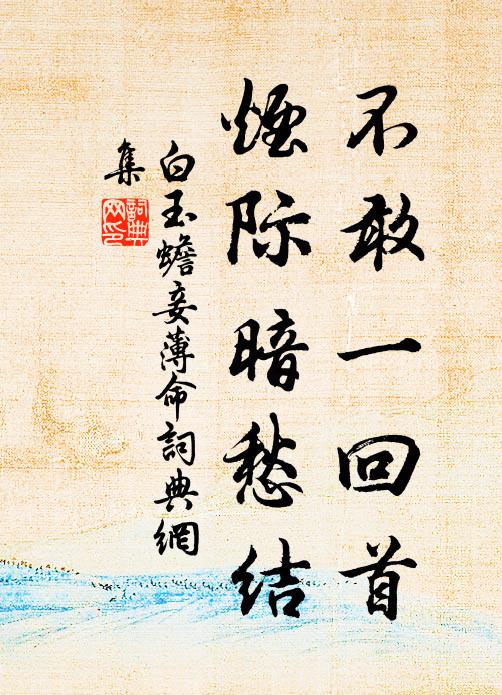 不敢一回首
煙际暗愁结
白玉蟾妾薄命詞典網
集
詞典
网印